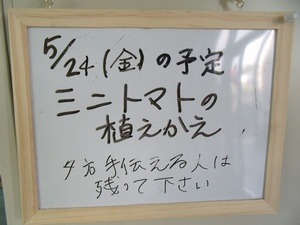 5/24(金)の予定
ミニトマトの
植えかえ
4方手伝える人は
残って下さい